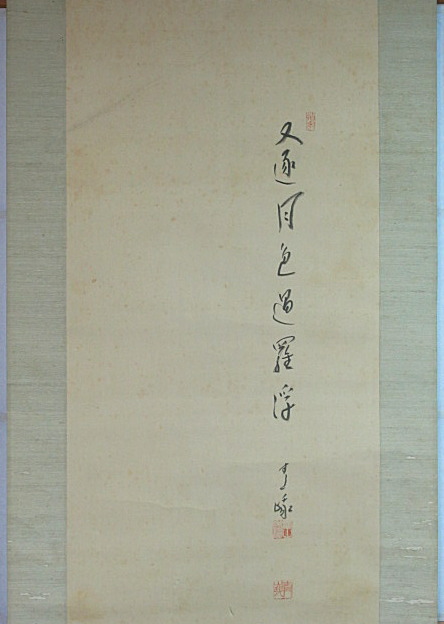 又逐月色過羅浮